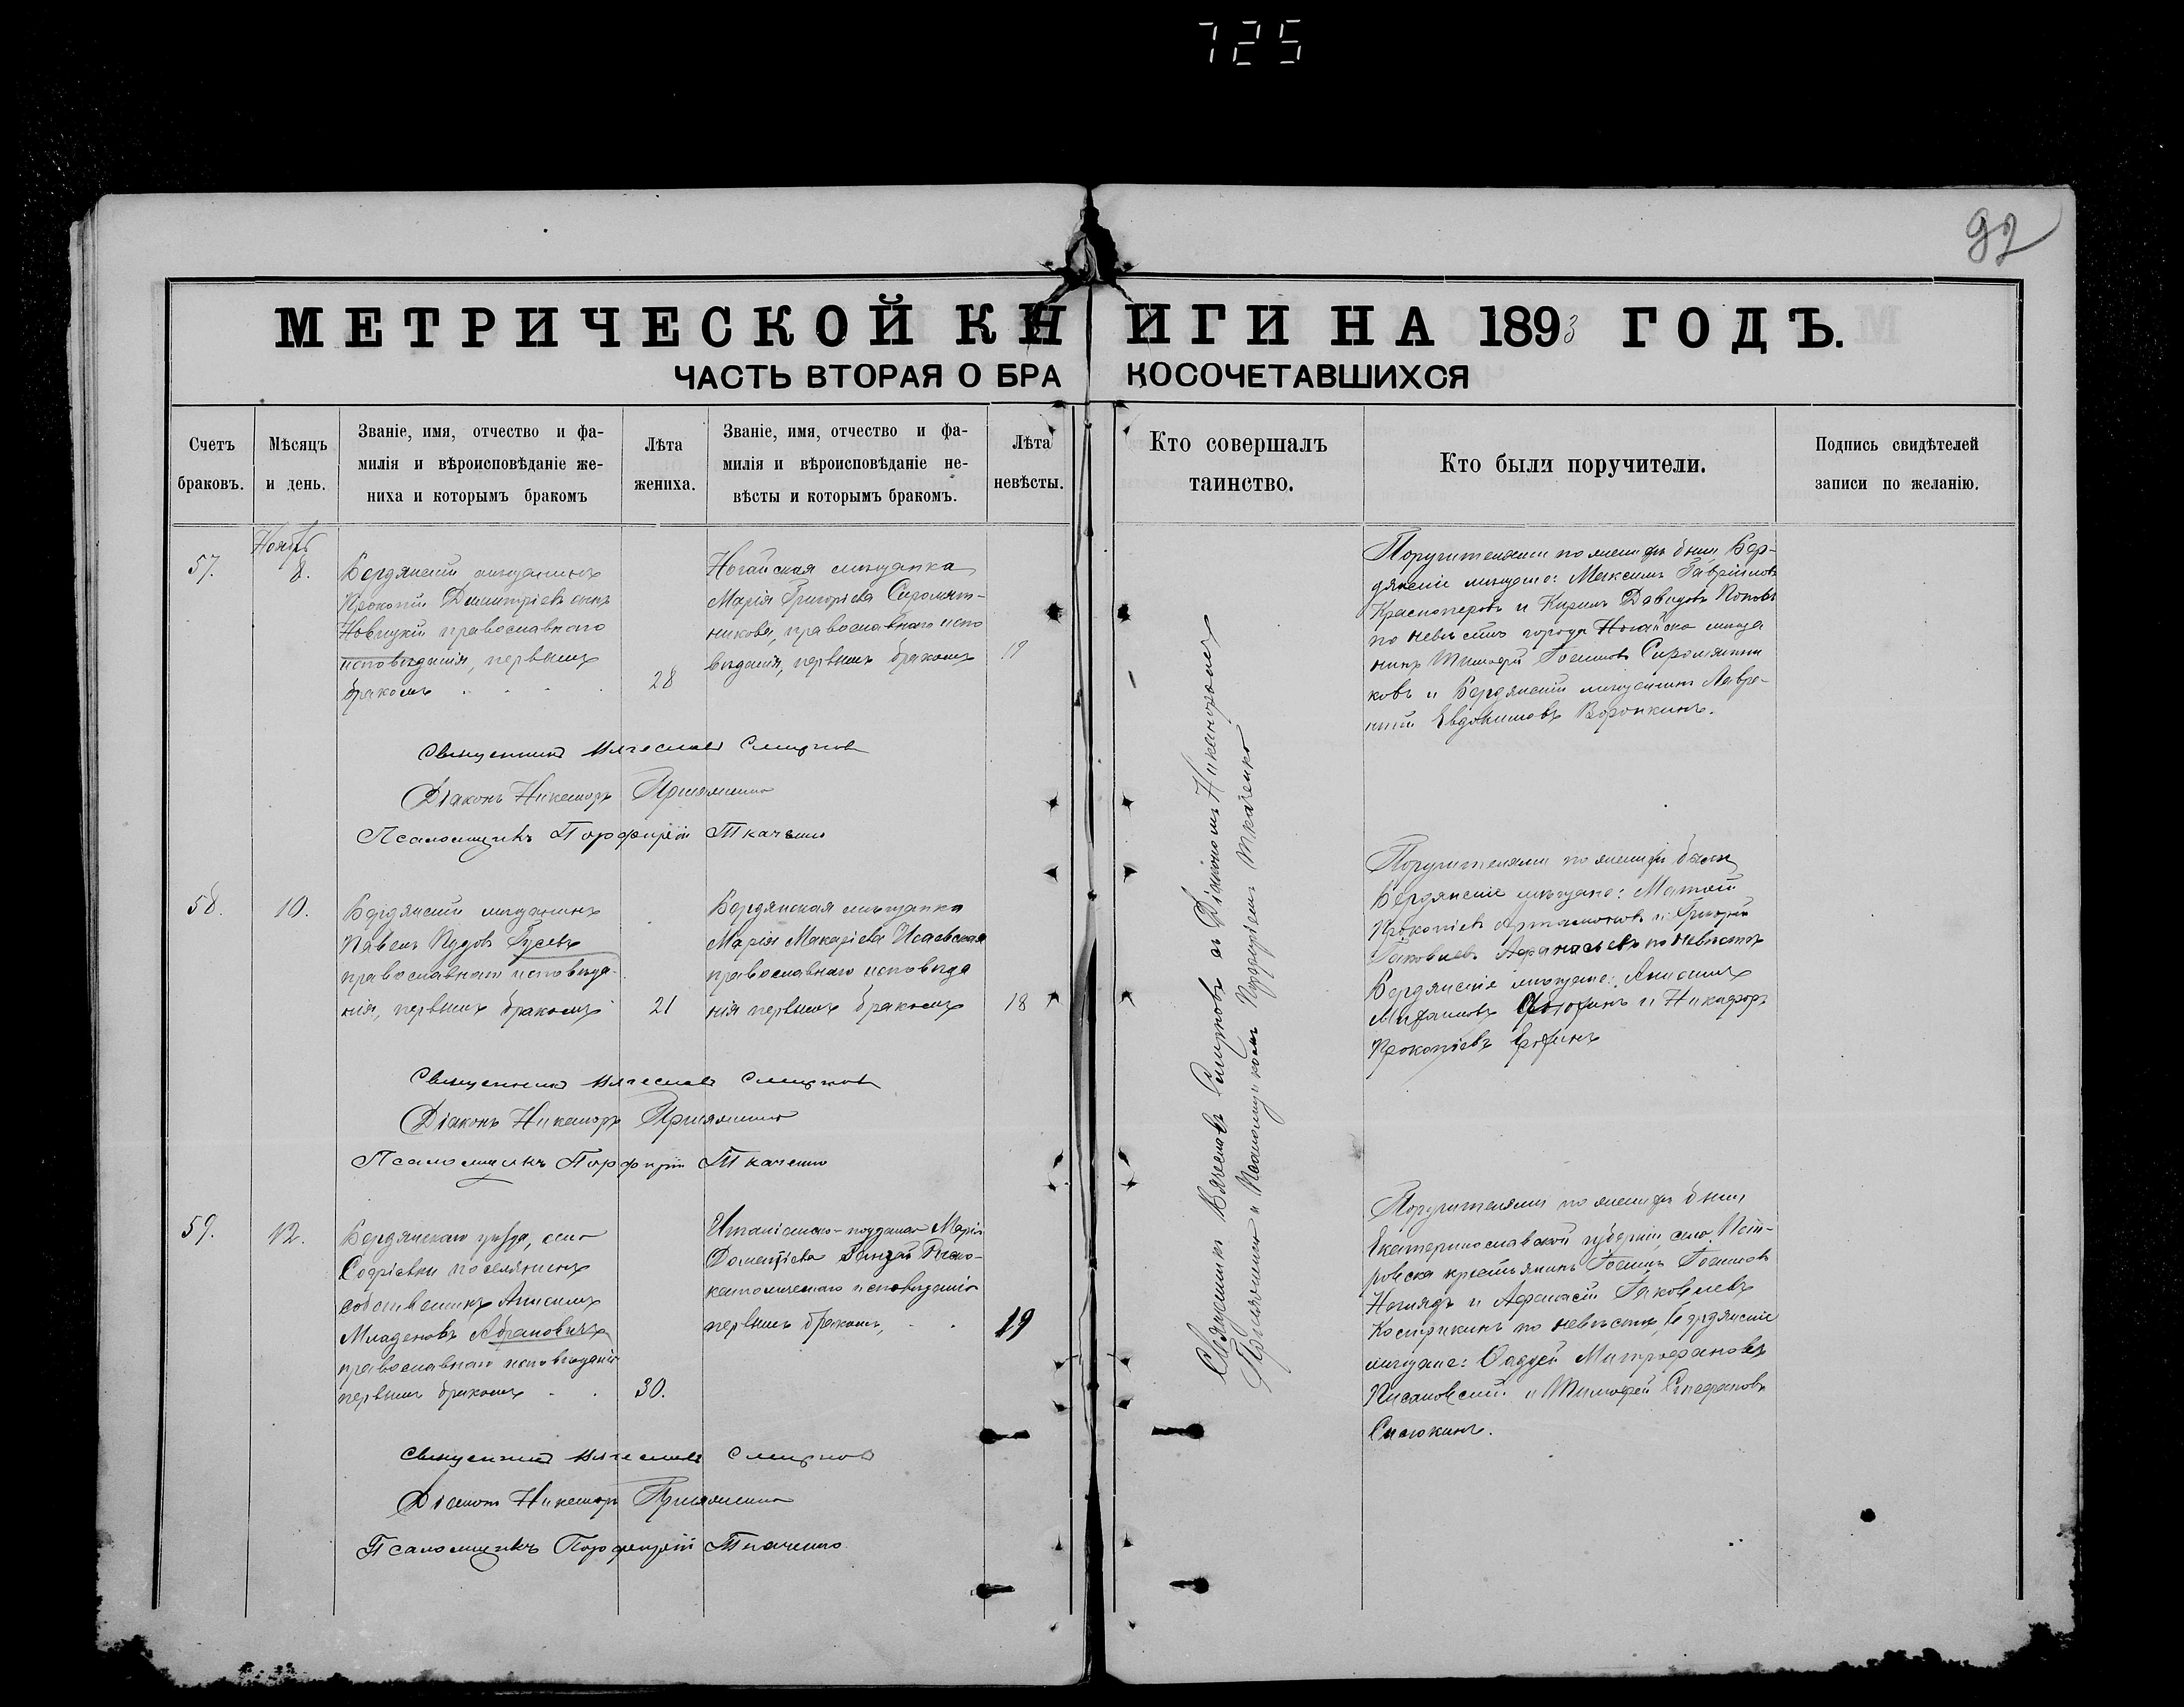 725
92
МЕТРИЧЕСКОЙ КНИГИ НА 1893 ГОДЪ.
ЧАСТЬ ВТОРАЯ О БРАКОСОЧЕТАВШИХСЯ
Счетъ браковъ.
Мѣсяцъ и день.
Званіе, имя, отчество и фа-
милія и вѣроисповѣданіе же-
ниха и которымъ бракомъ
Лѣта жениха.
Званіе, имя, отчество и фа-
милія и вѣроисповѣданіе не-
вѣсты и которымъ бракомъ.
Лѣта невѣсты.
Кто совершалъ
таинство.
Кто были поручители.
Подпись свидѣтелей
записи по желанію.
57.
Ноябрь
8.
Бердянскій мѣщанинъ
Прокопій Димитріевъ сынъ
Новицкій православнаго
исповѣданія, первымъ
бракомъ
28
Ногайская мѣщанка
Марія Григоріева Сиромят-
никова, православнаго испо
вѣданія, первымъ бракомъ
19
Поручителями по женихѣ были Бер-
дянскіе мѣщане: Максимъ Гавріиловъ
Красноперовъ и Кирилъ Давидовъ Поповъ
по невѣстѣ города Ногайска мѣща
нинъ Тимофей Іоанновъ Сиромятни
ковъ и Бердянскій мѣщанинъ Лавре-
нтій Евдокимовъ Воронкинъ.
Священникъ Вячеславъ Смирновъ
Діаконъ Никаноръ
Псаломщикъ Порфирій Ткаченко
58.
10.
Бердянскій мѣщанинъ
Павелъ Пудовъ Гусевъ
православнаго исповѣда-
нія, первымъ бракомъ
21
Бердянская мѣщанка
Марія Макаріева Исаевская
православнаго исповѣда
нія первымъ бракомъ
18
Поручителями по женихѣ были
Бердянскіе мѣщане: Матвей
Прокопіевъ Артамоновъ и Григорій
Іаковлевъ Афанасьевъ по невѣстѣ
Бердянскіе мѣщане: Анисимъ
и Никифоръ
Прокопіевъ
Священникъ Вячеславъ Смирновъ
Діаконъ Никаноръ
Псаломщикъ Порфирій Ткаченко
59.
12.
Бердянскаго уѣзда, село
Софіевки поселянинъ
собственникъ Анисимъ
Младеновъ Абрамовичъ
православнаго исповѣданія
первымъ бракомъ
30.
Итальянско-подданая Марія
Доментіева Римско-
католическаго исповѣданія
первымъ бракомъ,
19
Поручителями по женихѣ были
Екатеринославской губерніи, село Пет-
ровска крестьянинъ Іоаннъ Іоанновъ
и Афанасій Іаковлевъ
Кострикинъ по невѣстѣ, Бердянскіе
мѣщане: Фаддей Митрофановъ
Писановскій и Тимофей Стефановъ
Священникъ Вячеславъ Смирновъ
Діаконъ Никаноръ
Псаломщикъ Порфирій Ткаченко
Священникъ Вячеславъ Смирновъ съ Діакономъ Никаноромъ
и Псаломщикомъ Порфиріемъ Ткаченко